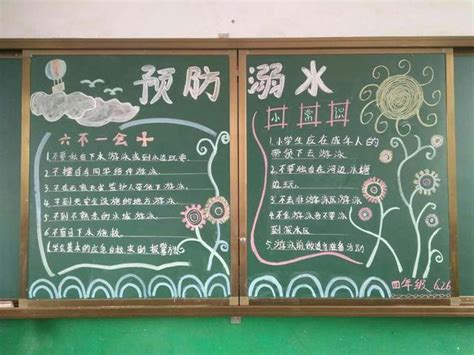 预防溺水
六不一会
1.不要私自下水游泳或到水边玩耍.
2.不擅自与同学结伴游泳.
3.不在无家长或监护人带领下游泳.
4.不到无安全设施的地方游泳.
5.不到不熟悉的水域游泳.
6.不盲目下水施救.
1.学会基本的应急自救、求助、报警方法
小常识
1.小学生应在成年人的
带领下去游泳.
2.不要独自在河边、水塘
边玩.
3.不去非游泳区游泳.
4.不会游泳者不要游
到深水区
5.游泳前做适当准备活动
四年级 6.26